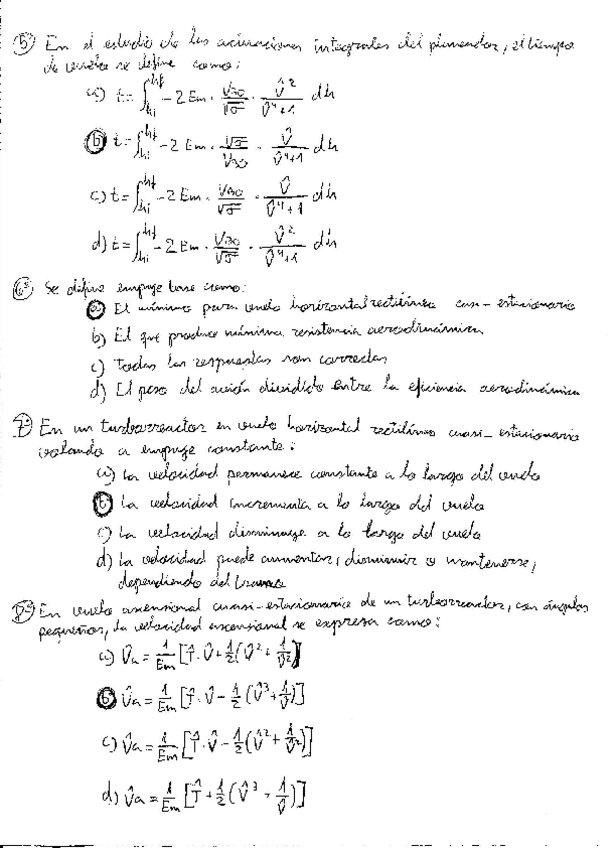 5ª) En el estudio de las actuaciones integrales del planeador, el tiempo
de vuelo se define como:
a) t = ∫_{hi}^{hf} -2 Em · V_BO/√σ · V̂²/(V̂⁴+1) dh
b) t = ∫_{hi}^{hf} -2 Em · √σ/V_BO · V̂/(V̂⁴+1) dh
c) t = ∫_{hi}^{hf} -2 Em · V_BO/√σ · V̂/(V̂⁴+1) dh
d) t = ∫_{hi}^{hf} -2 Em · V_BO/√σ · V̂²/(V̂⁴+1) dh
6ª) Se define empuje base como:
a) El mínimo para vuelo horizontal rectilíneo casi-estacionario
b) El que produce máxima resistencia aerodinámica
c) Todas las respuestas son correctas
d) El peso del avión dividido entre la eficiencia aerodinámica
7ª) En un turborreactor en vuelo horizontal rectilíneo cuasi-estacionario
volando a empuje constante:
a) La velocidad permanece constante a lo largo del vuelo
b) La velocidad incrementa a lo largo del vuelo
c) La velocidad disminuye a lo largo del vuelo
d) La velocidad puede aumentar, disminuir o mantenerse,
dependiendo del tramo
8ª) En vuelo ascensional cuasi-estacionario de un turborreactor, con ángulos
pequeños, la velocidad ascensional se expresa como:
a) V̂a = 1/Em [T̂·V̂ + 1/2 (V̂² + 1/V̂²)]
b) V̂a = 1/Em [T̂·V̂ - 1/2 (V̂³ + 1/V̂)]
c) V̂a = 1/Em [T̂·V̂ - 1/2 (V̂² + 1/V̂²)]
d) V̂a = 1/Em [T̂ + 1/2 (V̂³ + 1/V̂)]